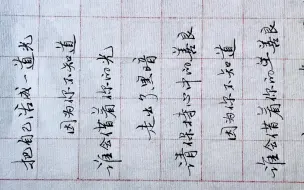 把自己活成一道光
因为你不知道
谁会借着你的光
走出了黑暗
请你保持心中的善良
因为你不知道
谁会借着你的善良